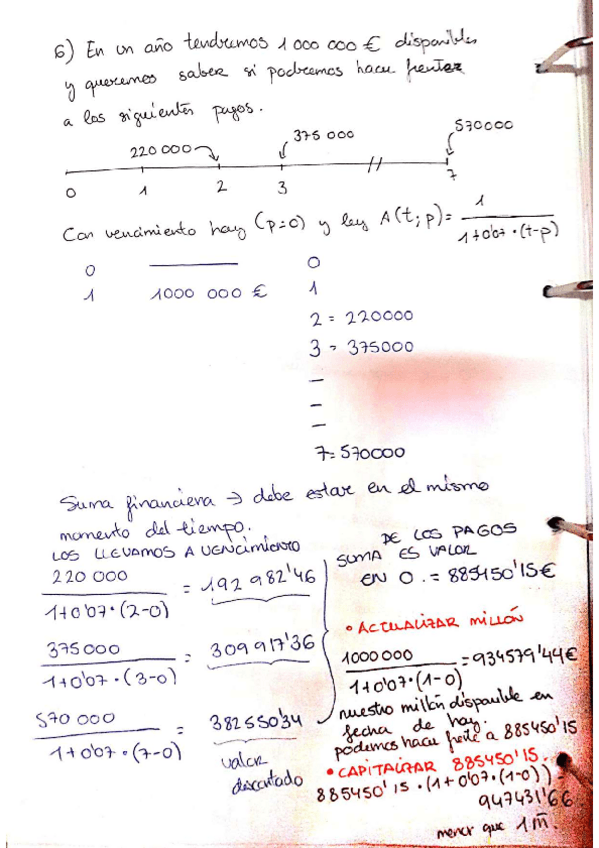 6) En un año tendremos 1 000 000 € disponibles
y queremos saber si podremos hacer frente
a los siguientes pagos.
220 000 375 000 570000
0 1 2 3 // 7
Con vencimiento hoy (p=0) y ley A(t;p)= 1 / 1+0'07·(t-p)
0 — 0
1 1000 000 € 1
2 = 220000
3 = 375000
—
—
—
7=570000
Suma financiera → debe estar en el mismo
momento del tiempo.
LOS LLEVAMOS A VENCIMIENTO
220 000 / 1+0'07·(2-0) = 192 982'46
375000 / 1+0'07·(3-0) = 309 917'36
570 000 / 1+0'07·(7-0) = 382550'34
valor
descontado
DE LOS PAGOS
SUMA ES VALOR
EN 0. = 885450'15€
• ACTUALIZAR MILLÓN
1000000 / 1+0'07·(1-0) = 934579'44€
nuestro millón disponible en
fecha de hoy.
podemos hacer frente a 885450'15
• CAPITALIZAR 885450'15.
885450'15·(1+0'07·(1-0)) =
947431'66
menor que 1m̅.